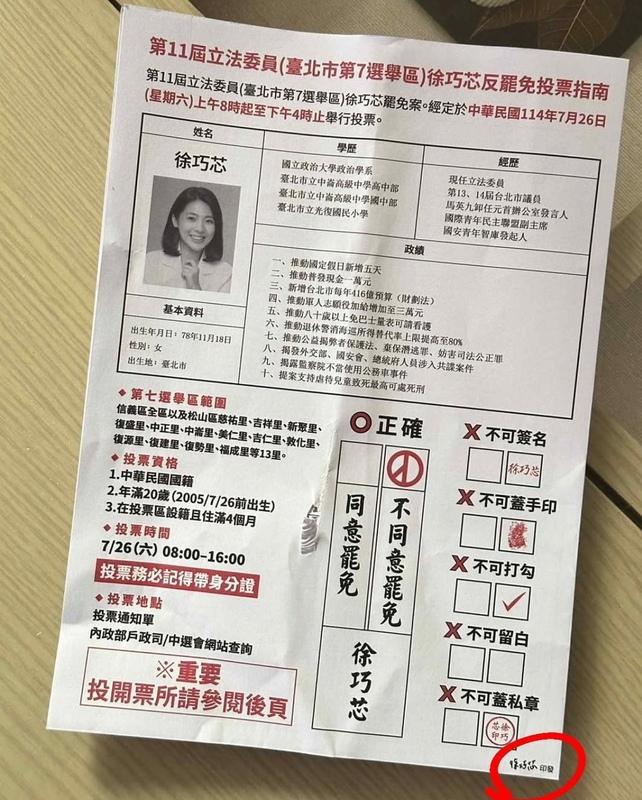 第11屆立法委員(臺北市第7選舉區)徐巧芯反罷免投票指南
第11屆立法委員(臺北市第7選舉區)徐巧芯罷免案。經定於中華民國114年7月26日
(星期六)上午8時起至下午4時止舉行投票。
姓名
徐巧芯
基本資料
出生年月日:78年11月18日
性別:女
出生地:臺北市
學歷
國立政治大學政治學系
臺北市立中崙高級中學高中部
臺北市立中崙高級中學國中部
臺北市立光復國民小學
經歷
現任立法委員
第13、14屆台北市議員
馬英九卸任元首辦公室發言人
國際青年民主聯盟副主席
國安青年智庫發起人
政績
一、推動國定假日新增五天
二、推動普發現金一萬元
三、新增台北市每年416億預算(財劃法)
四、推動軍人志願役加給增加至三萬元
五、推動八十歲以上免巴士量表可請看護
六、推動退休警消海巡所得替代率上限提高至80%
七、推動公益揭弊者保護法、棄保潛逃罪、妨害司法公正罪
八、揭發外交部、國安會、總統府人員涉入共諜案件
九、揭露監察院不當使用公務車事件
十、提案支持虐待兒童致死最高可處死刑
◆ 第七選舉區範圍
信義區全區以及松山區慈祐里、吉祥里、新聚里、
復盛里、中正里、中崙里、美仁里、吉仁里、敦化里、
復源里、復建里、復勢里、福成里等13里。
◆ 投票資格
1.中華民國國籍
2.年滿20歲(2005/7/26前出生)
3.在投票區設籍且住滿4個月
◆ 投票時間
7/26(六) 08:00–16:00
投票務必記得帶身分證
◆ 投票地點
投票通知單
內政部戶政司/中選會網站查詢
※重要
投開票所請參閱後頁
O 正確
同意罷免
不同意罷免
徐巧芯
X 不可簽名
徐巧芯
X 不可蓋手印
X 不可打勾
X 不可留白
X 不可蓋私章
芯徐
印巧
徐巧芯 印發